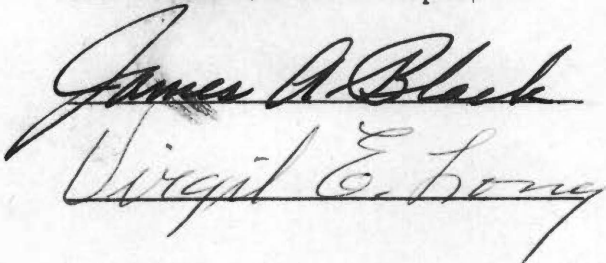 James A. Black
Virgil E. Long